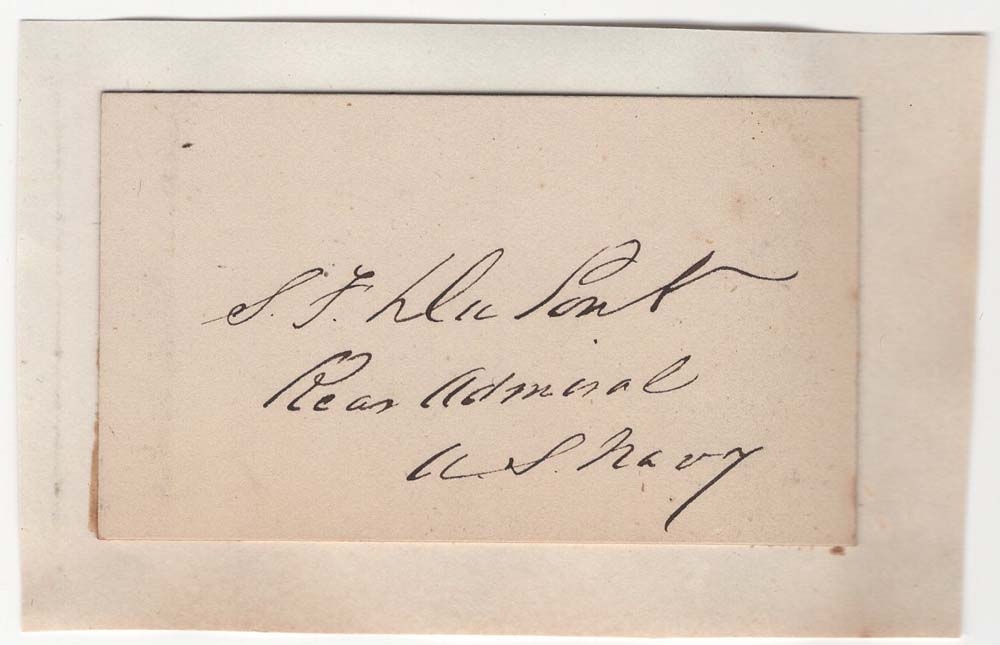 S. F. Du Pont
Rear Admiral
U. S. Navy